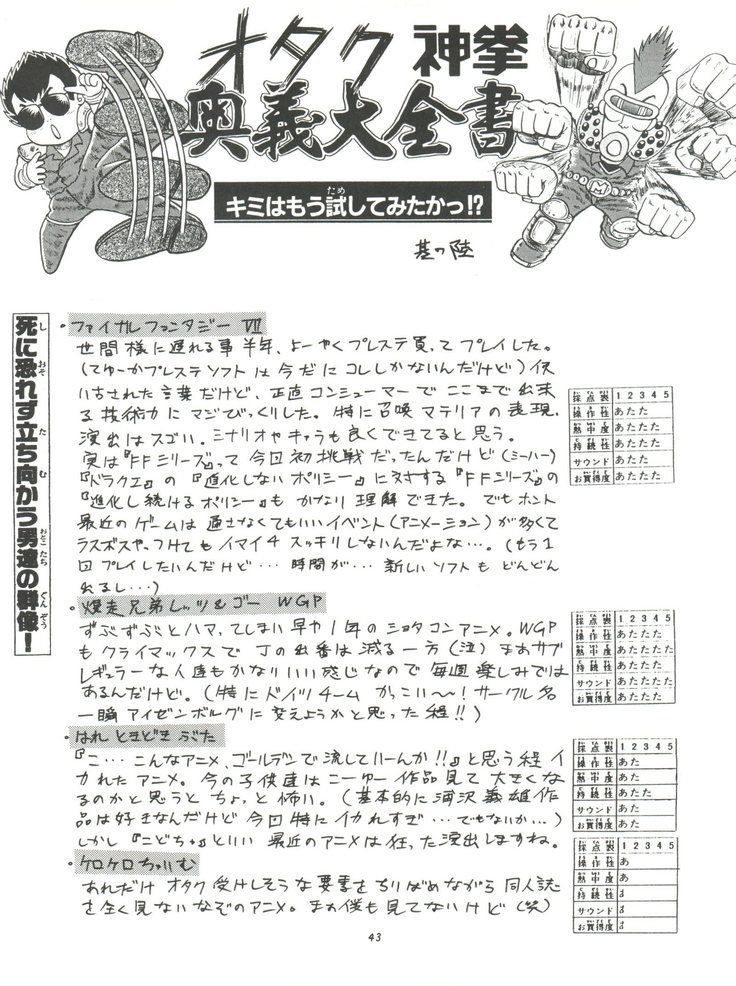 オタク神拳
奥義大全書
キミはもう試してみたかっ!?
其の陸
死に恐れず立ち向かう男達の群像!
・ファイナルファンタジーⅦ
世間様に遅れる事半年、よーやくプレステ買ってプレイした。
(てゆーかプレステソフトは今だにコレしかないんだけど)使
い古された言葉だけど、正直コンシューマーでここまで出来
る技術力にマジびっくりした。特に召喚マテリアの表現、
演出はスゴい。シナリオやキャラも良くできてると思う。
実は『FFシリーズ』って今回初挑戦だったんだけど(ミーハー)
『ドラクエ』の『進化しないポリシー』に対する『FFシリーズ』の
『進化し続けるポリシー』もかなり理解できた。でもホント
最近のゲームは通さなくてもいいイベント(アニメーション)が多くて
ラスボスやっつけてもイマイチスッキリしないんだよな…。(もう1
回プレイしたいんだけど…時間が…新しいソフトもどんどん
出るし…)
採点表 1 2 3 4 5
操作性 あたた
熱中度 あたたた
持続性 あたたた
サウンド あたた
お買得度 あたたた
・爆走兄弟レッツ&ゴー WGP
ずぶずぶとハマってしまい早や1年のショタコンアニメ。WGP
もクライマックスでJの出番は減る一方(泣)まあサブ
レギュラーな人達もかなりいい感じなので毎週楽しみでは
あるんだけど。(特にドイツチームかっこい〜!サークル名
一瞬アイゼンボルグに変えようかと思った程!!)
採点表 1 2 3 4 5
操作性 あたたた
熱中度 あたたたた
持続性 あたたた
サウンド あたたたた
お買得度 あたたた
・はれときどきぶた
『こ…こんなアニメ、ゴールデンで流していーんか!!』と思う程イ
カれたアニメ。今の子供達はこーゆー作品見て大きくな
るのかと思うとちょっと怖い。(基本的に湯沢義雄作
品は好きなんだけど今回特にイカれすぎ…でもないか…)
しかし『こどちゃ』といい最近のアニメは狂った演出しますね。
採点表 1 2 3 4 5
操作性 あた
熱中度 あたた
持続性 あたた
サウンド あた
お買得度 あたた
・ケロケロちゃいむ
あれだけオタク受けしそうな要素をちりばめながら同人誌
を全く見ないなぞのアニメ。まあ僕も見てないけど(笑)
採点表 1 2 3 4 5
操作性 あ
熱中度 あ
持続性
サウンド
お買得度
43